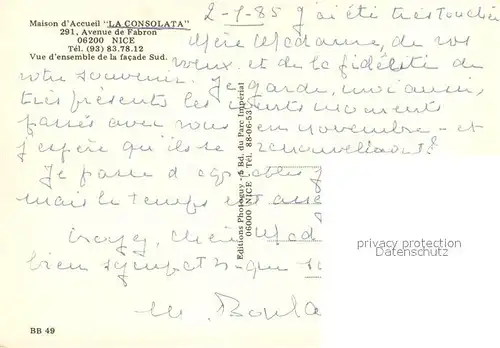 Maison d'Accueil "LA CONSOLATA"
291, Avenue de Fabron
06200 NICE
Tél. (93) 83.78.12
Vue d'ensemble de la façade Sud.
2-1-85 J'ai été très touchée
chère Madame, de vos
voeux et de la fidélité de
votre souvenir. Je garde, moi aussi,
très présents les moments
passés avec vous en novembre - et
j'espère qu'ils se renouvelleront!
Je passe d'agréables
mais le temps est
Croyez, chère Mad
bien sympathique
Editions Photoguy - 6 Bd. du Parc Impérial
06000 NICE - Tél. 88-06-53
privacy protection
by ansichtskartenhandel.com
BB 49